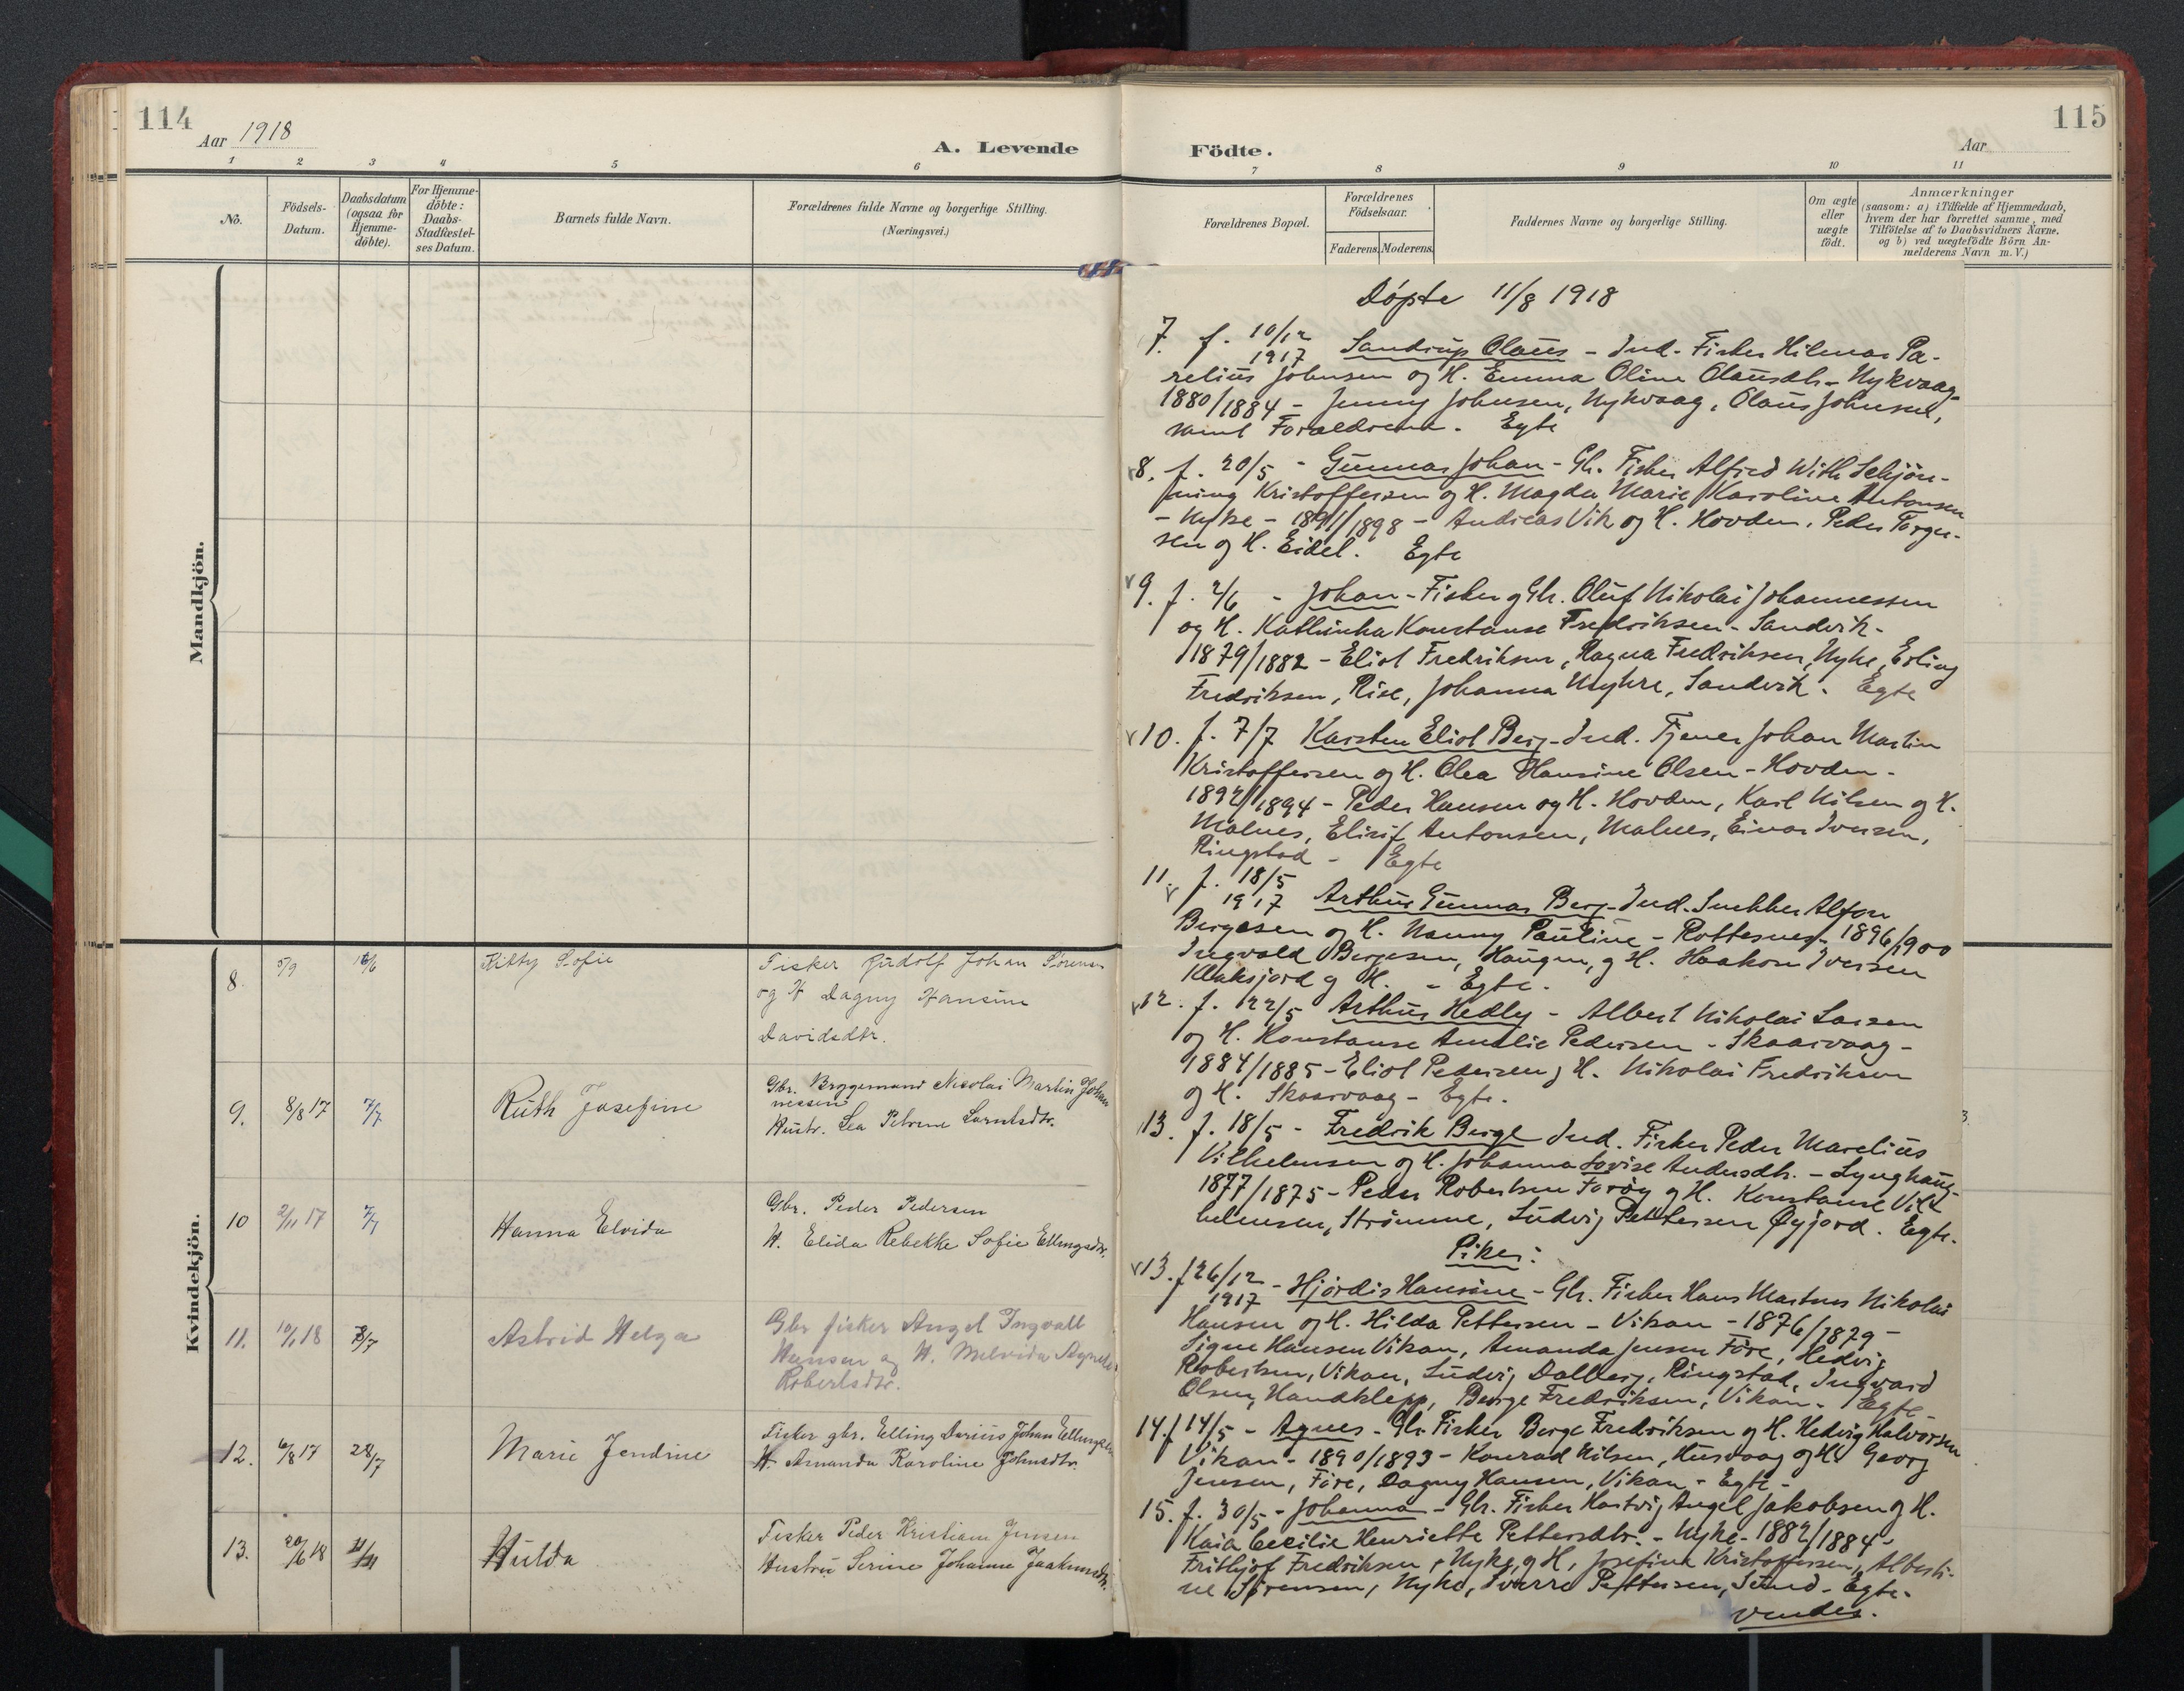 114
Aar 1918
A. Levende
1 2 3 4 5 6
No.
Födsels-
Datum.
Daabsdatum
(ogsaa for
Hjemme-
döbte).
For Hjemme-
döbte:
Daabs-
Stadfæstel-
ses Datum.
Barnets fulde Navn.
Forældrenes fulde Navne og borgerlige Stilling.
(Næringsvei.)
Mandkjön.
Kvindekjön.
8. 5/9 Kitty Sofie Fisker Rudolf Johan Sörensen
og H Dagny Hansine
Davidsdtr.
9. 8/8 17 7/7 Ruth Josefine Gbr. Bryggemand Nicolai Martin Johan
nessen
Hustr. Lea Petrine Larntsdtr.
10 2/11 17 7/7 Hanna Elvida Gbr. Peder Pedersen
H. Elida Rebekke Sofie Ellingsdtr.
11. 10/1 18 7/7 Astrid Helga Gbr fisker Angel Ingvall
Hansen og H. Melvida Agnete
Robertsdtr.
12. 6/8 17 28/7 Marie Jendine Fisker gbr. Elling Darius Johan Ellingsen
H. Amanda Karoline Johnsdtr.
13. 20/6 18 Hulda Fisker Peder Kristian Jensen
Hustru Serine Johanne Jaakimsdtr.
115
Aar
Födte.
7 8 9 10 11
Forældrenes Bopæl.
Forældrenes
Födselsaar.
Faderens. Moderens.
Faddernes Navne og borgerlige Stilling.
Om ægte
eller
uægte
födt.
Anmærkninger
(saasom: a) i Tilfælde af Hjemmedaab,
hvem der har forrettet samme, med
Tilföielse af to Daabsvidners Navne.
og b) ved uægtefödte Börn An-
melderens Navn m. V.)
Döpte 11/8 1918
7. f. 10/12
1917 Sandrup Olaus - Ind. Fisker Hilmar Pa-
relius Johnsen og H. Emma Oline Olausdtr - Nykvaag-
1880/1884 - Jenny Johnsen, Nykvaag, Olaus Johnsen,
samt Forældrene. Egte
8. f. 20/5 - Gunnar Johan - Gbr. Fisker Alfred With Schjön-
ning Kristoffersen og H. Magda Marie Karoline Antonsen
- Nyke - 1891/1898 - Andreas Vik og H. Hovden, Peder Torger-
sen og H. Eidet. Egte
9. f. 2/6 - Johan - Fisker g Gbr. Oluf Nikolai Johannessen
og H. Kathinka Konstanse Fredriksen - Sandvik -
1879/1882 - Eliot Fredriksen, Ragna Fredriksen, Nyke, Erling
Fredriksen, Rise, Johanna Myhre, Sandvik. Egte
10. f. 7/7 Karsten Eliot Berg - Ind. Tjener Johan Martin
Kristoffersen og H. Olea Hansine Olsen - Hovden -
1892/1894 - Peder Hansen og H. Hovden, Karl Nilsen og H.
Malnes, Elisif Antonsen, Malnes, Einar Iversen,
Ringstad - Egte
11. f. 18/5
1917 Arthur Gunnar Berg - Ind. Snekker Alfon
Bergesen og H. Nanny Pauline - Rottesnes - 1896/1900
Ingvald Bergesen, Haugen, g H. Haakon Iversen
Klaksjord g H. - Egte.
12. f. 22/5 Arthur Hedly - Albert Nikolai Larsen
og H. Konstanse Amalie Pedersen - Skaarvaag -
1884/1885 - Eliot Pedersen g H. Nikolai Fredriksen
og H. Skaarvaag - Egte.
13. f. 18/5 - Fredrik Berge Ind. Fisker Peder Marelius
Vilhelmsen og H. Johanna Lovise Andersdtr. - Lynghaug-
1877/1875 - Peder Robertsen Foröy g H. Konstanse Vil-
helmsen, Strömme, Ludvig Pettersen Öyjord. Egte.
Piker:
13. f 26/12
1917 - Hjördis Hansine - Gbr. Fisker Hans Martnes Nikolai
Hansen og H. Hilda Pettersen - Vikan - 1876/1879 -
Signe Hansen Vikan, Amanda Jensen Före, Hedvig
Robertsen, Vikan, Ludvig Dalberg, Ringstad, Ingvard
Olsen, Handklepp, Berge Fredriksen, Vikan. Egte -
14. f 14/5 - Agnes - Gbr. Fisker Berge Fredriksen og H. Hedvig Halvorsen
Vikan - 1890/1893 - Konrad Nilsen, Husvaag og H. Georg
Jensen, Före, Dagny Hansen, Vikan - Egte -
15. f. 30/5 - Johanna - Gbr. Fisker Hartvig Angel Jakobsen g H.
Kaia Cecilie Henriette Pettersdtr. - Nyke - 1882/1884 -
Frithjof Fredriksen, Nyke, g H, Josefine Kristoffersen, Alberti-
ne Sörensen, Nyke, Sverre Pettersen, Sund - Egte.
vendes.